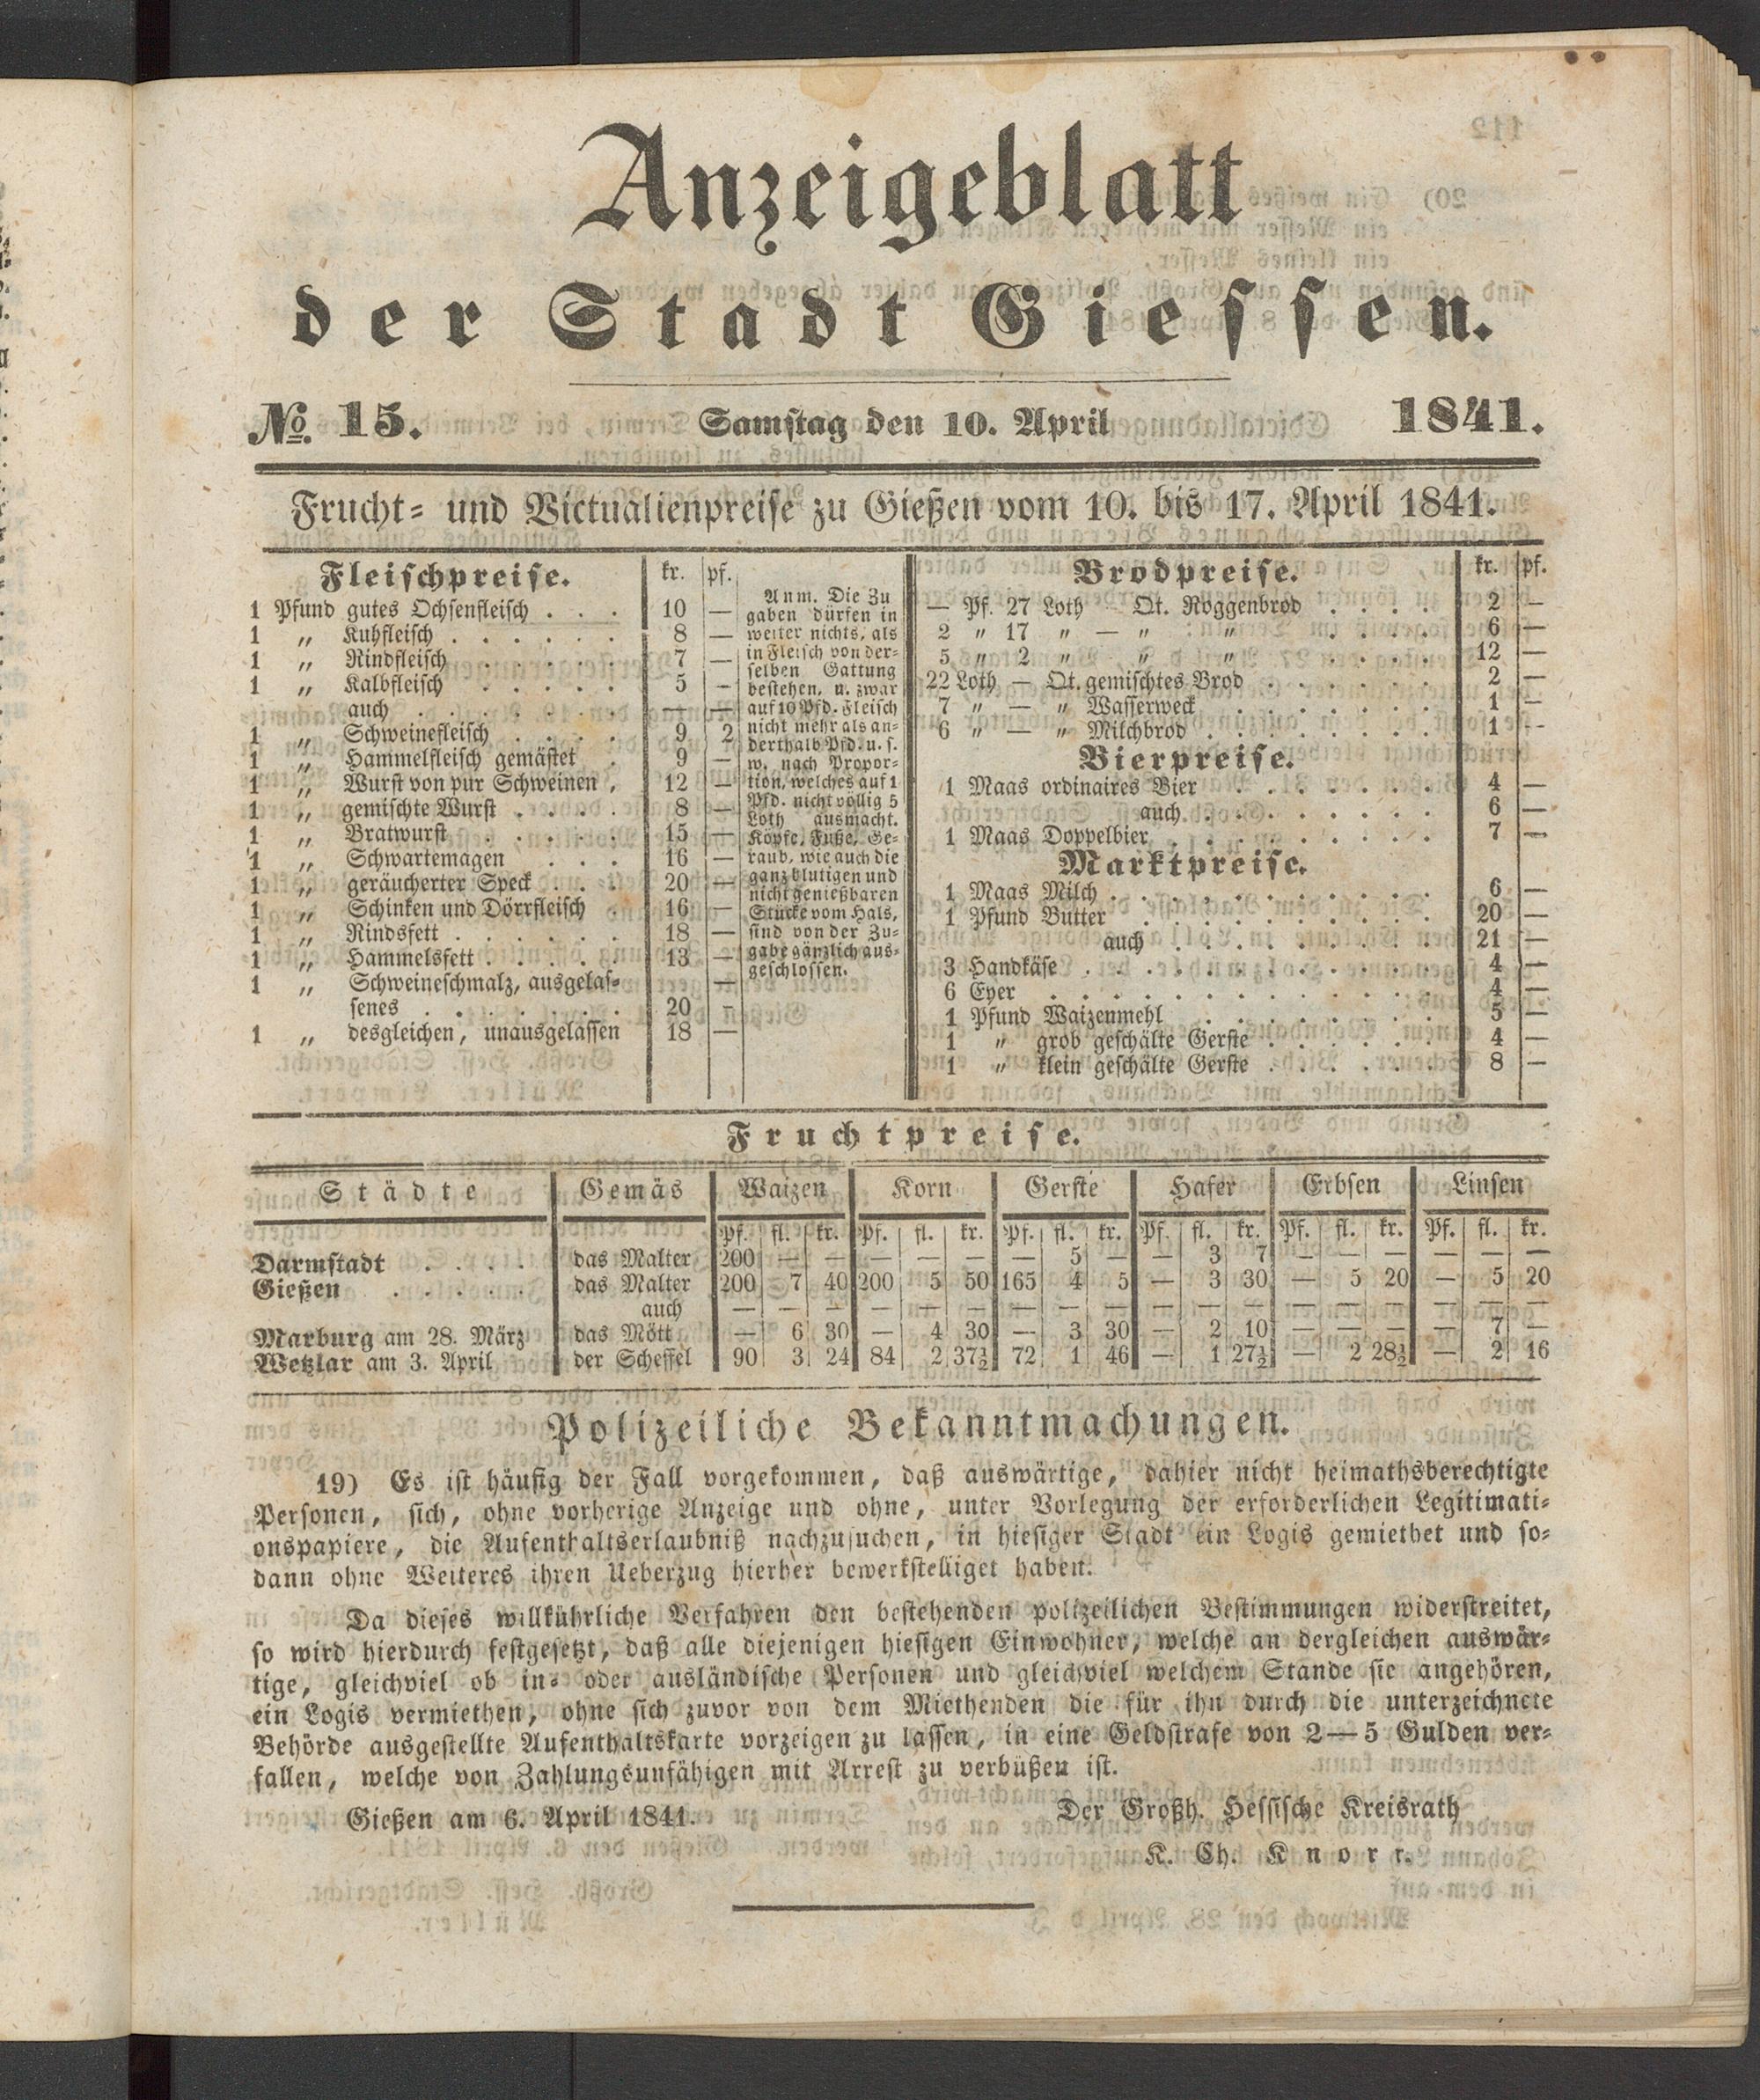 Anzeigeblatt
der Stadt Giessen.
No. 15. Samstag den 10. April 1841.
Frucht- und Victualienpreise zu Gießen vom 10. bis 17. April 1841.
Fleischpreise. kr. pf.
1 Pfund gutes Ochsenfleisch . . . 10 —
1 „ Kuhfleisch . . . . . . 8 —
1 „ Rindfleisch . . . . . 7 —
1 „ Kalbfleisch . . . . . 5 —
auch . . . . . . . — —
1 „ Schweinefleisch . . . . 9 2
1 „ Hammelfleisch gemästet . 9 —
1 „ Wurst von pur Schweinen . 12 —
1 „ gemischte Wurst . . . . 8 —
1 „ Bratwurst . . . . . 15 —
1 „ Schwartemagen . . . 16 —
1 „ geräucherter Speck . . . 20 —
1 „ Schinken und Dörrfleisch . 16 —
1 „ Rindsfett . . . . . . 18 —
1 „ Hammelsfett . . . . . 13 —
1 „ Schweineschmalz, ausgelas- —
senes . . . . . . . 20 —
1 „ desgleichen, unausgelassen 18 —
Anm. Die Zu
gaben dürfen in
weiter nichts, als
in Fleisch von der-
selben Gattung
bestehen, u. zwar
auf 10 Pfd. Fleisch
nicht mehr als an-
derthalb Pfd. u. s.
w. nach Propor-
tion, welches auf 1
Pfd. nicht völlig 5
Loth ausmacht.
Köpfe, Füße, Ge-
raub, wie auch die
ganz blutigen und
nicht genießbaren
Stücke vom Hals,
sind von der Zu-
gabe gänzlich aus-
geschlossen.
Brodpreise. kr. pf.
— Pf. 27 Loth — Qt. Roggenbrod . . . . 2 —
2 „ 17 „ — „ „ . . . . 6 —
5 „ 2 „ „ „ . . . . 12 —
22 Loth — Qt. gemischtes Brod . . . . . . 2 —
7 „ — „ Wasserweck . . . . . . 1 —
6 „ — „ Milchbrod . . . . . . 1 —
Bierpreise.
1 Maas ordinaires Bier . . . . . . 4 —
auch . . . . . . . . 6 —
1 Maas Doppelbier . . . . . . . 7 —
Marktpreise.
1 Maas Milch . . . . . . . . . 6 —
1 Pfund Butter . . . . . . . . 20 —
auch . . . . . . . . 21 —
3 Handkäse . . . . . . . . . 4 —
6 Eyer . . . . . . . . . . 4 —
1 Pfund Waizenmehl . . . . . . 5 —
1 „ grob geschälte Gerste . . . . . 4 —
1 „ klein geschälte Gerste . . . . . 8 —
Fruchtpreise.
Städte Gemäs Waizen Korn Gerste Hafer Erbsen Linsen
Pf. fl. kr. Pf. fl. kr. Pf. fl. kr. Pf. fl. kr. Pf. fl. kr. Pf. fl. kr.
Darmstadt . . . . das Malter 200 — — — — — — 5 — — 3 7 — — — — — —
Gießen . . . . . das Malter 200 7 40 200 5 50 165 4 5 — 3 30 — 5 20 — 5 20
auch — — — — — — — — — — — — — — — — — —
Marburg am 28. März das Mött — 6 30 — 4 30 — 3 30 — 2 10 — — — — 7 —
Wetzlar am 3. April der Scheffel 90 3 24 84 2 37½ 72 1 46 — 1 27½ — 2 28½ — 2 16
Polizeiliche Bekanntmachungen.
19) Es ist häufig der Fall vorgekommen, daß auswärtige, dahier nicht heimathsberechtigte
Personen, sich, ohne vorherige Anzeige und ohne, unter Vorlegung der erforderlichen Legitimati-
onspapiere, die Aufenthaltserlaubniß nachzusuchen, in hiesiger Stadt ein Logis gemiethet und so-
dann ohne Weiteres ihren Ueberzug hierher bewerkstelliget haben.
Da dieses willkührliche Verfahren den bestehenden polizeilichen Bestimmungen widerstreitet,
so wird hierdurch festgesetzt, daß alle diejenigen hiesigen Einwohner, welche an dergleichen auswär-
tige, gleichviel ob in- oder ausländische Personen und gleichviel welchem Stande sie angehören,
ein Logis vermiethen, ohne sich zuvor von dem Miethenden die für ihn durch die unterzeichnete
Behörde ausgestellte Aufenthaltskarte vorzeigen zu lassen, in eine Geldstrafe von 2—5 Gulden ver-
fallen, welche von Zahlungsunfähigen mit Arrest zu verbüßen ist.
Gießen am 6. April 1841. Der Großh. Hessische Kreisrath
K. Ch. Knorr.